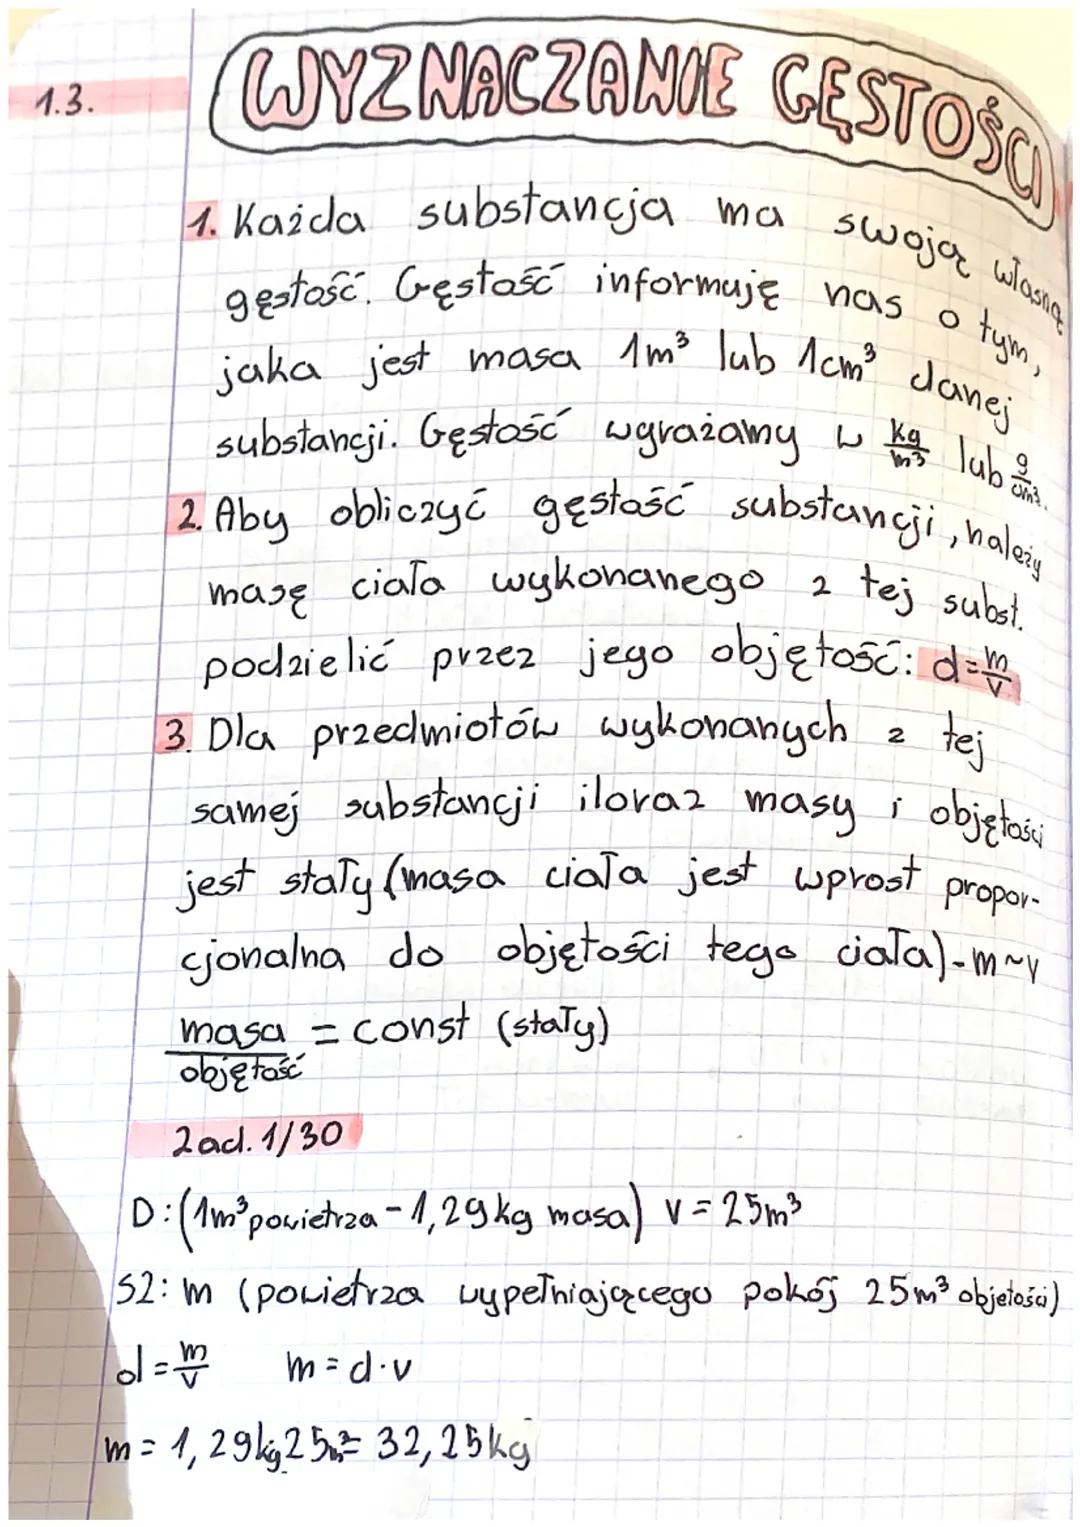 1.3.
WYZNACZANIE GĘSTOŚCI
1. Każda substancja ma swoją własną
gęstość. Gęstość informuję nas o tym,
jaka jest masa 1m³ lub 1cm³ danej
substancji. Gęstość wyrażamy w kg/m³ lub g/cm³.
2. Aby obliczyć gęstość substancji, należy
masę ciała wykonanego z tej subst.
podzielić przez jego objętość: d=m/v
3. Dla przedmiotów wykonanych z tej
samej substancji iloraz masy i objętości
jest stały (masa ciała jest wprost propor-
cjonalna do objętości tego ciała) - m~v
masa/objętość = const (stały)
Zad. 1/30
D: (1m³ powietrza - 1,29kg masa) v = 25m³
SZ: m (powietrza wypełniającego pokój 25m³ objetości)
d = m/v m = d·v
m = 1,29kg·25m³= 32,25kg